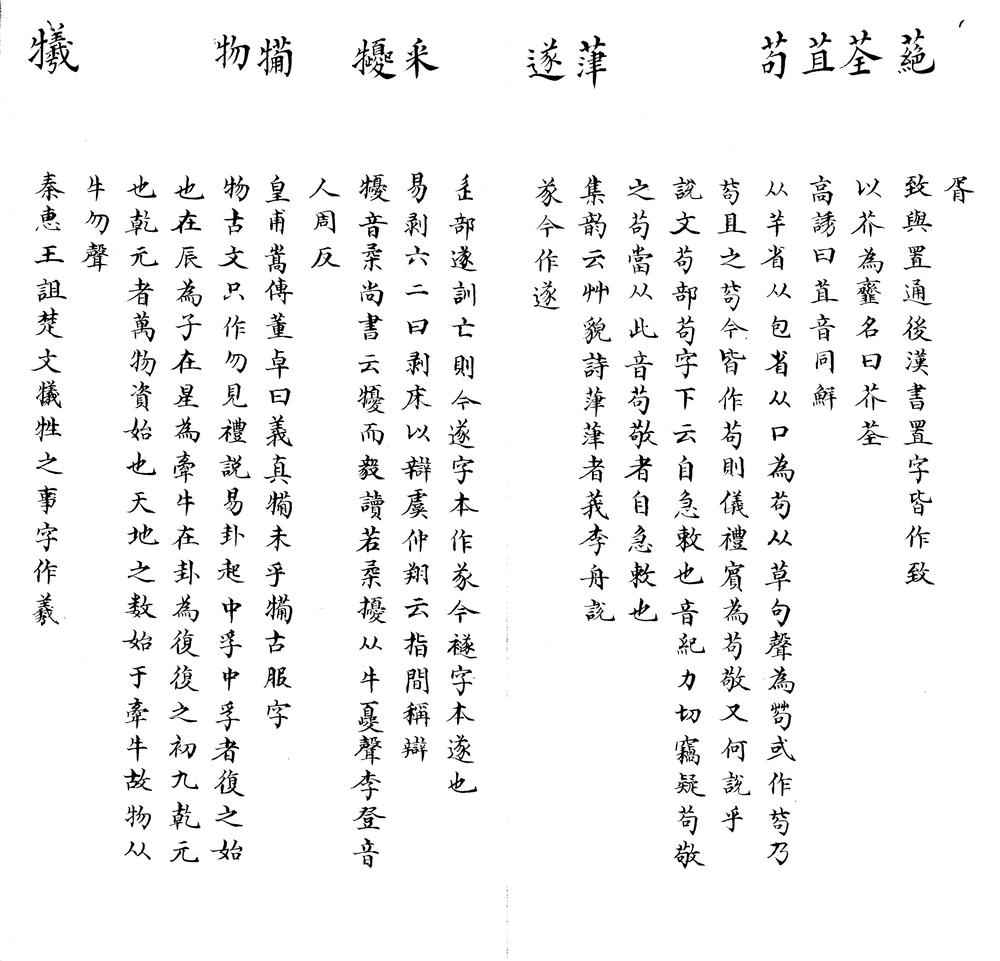 胥
蕝 致與置通後漢書置字皆作致
荃 以芥為虀名曰芥荃
苴 高誘曰苴音同鮮
苟 从羊省从包省从口為茍从草句聲為苟或作茍乃
茍且之茍今皆作苟則儀禮賓為苟敬又何說乎
說文茍部茍字下云自急敕也音紀力切竊疑苟敬
之苟當从此音苟敬者自急敕也
葏 集韵云艸皃詩葏葏者莪李舟說
遂 㒸今作遂
辵部遂訓亡則今遂字本作㒸今襚字本遂也
釆 易剥六二曰剥床以辯虞仲翔云指間稱辯
犪 犪音柔尚書云犪而毅讀若柔擾从牛夒聲李登音
人周反
犕 皇甫嵩傳董卓曰義真犕未乎犕古服字
物 物古文只作勿見禮説易卦起中孚中孚者復之始
也在辰為子在星為牽牛在卦為復復之初九乾元
也乾元者萬物資始也天地之数始于牽牛故物从
牛勿聲
犧 秦惠王詛楚文犧牲之事字作羲